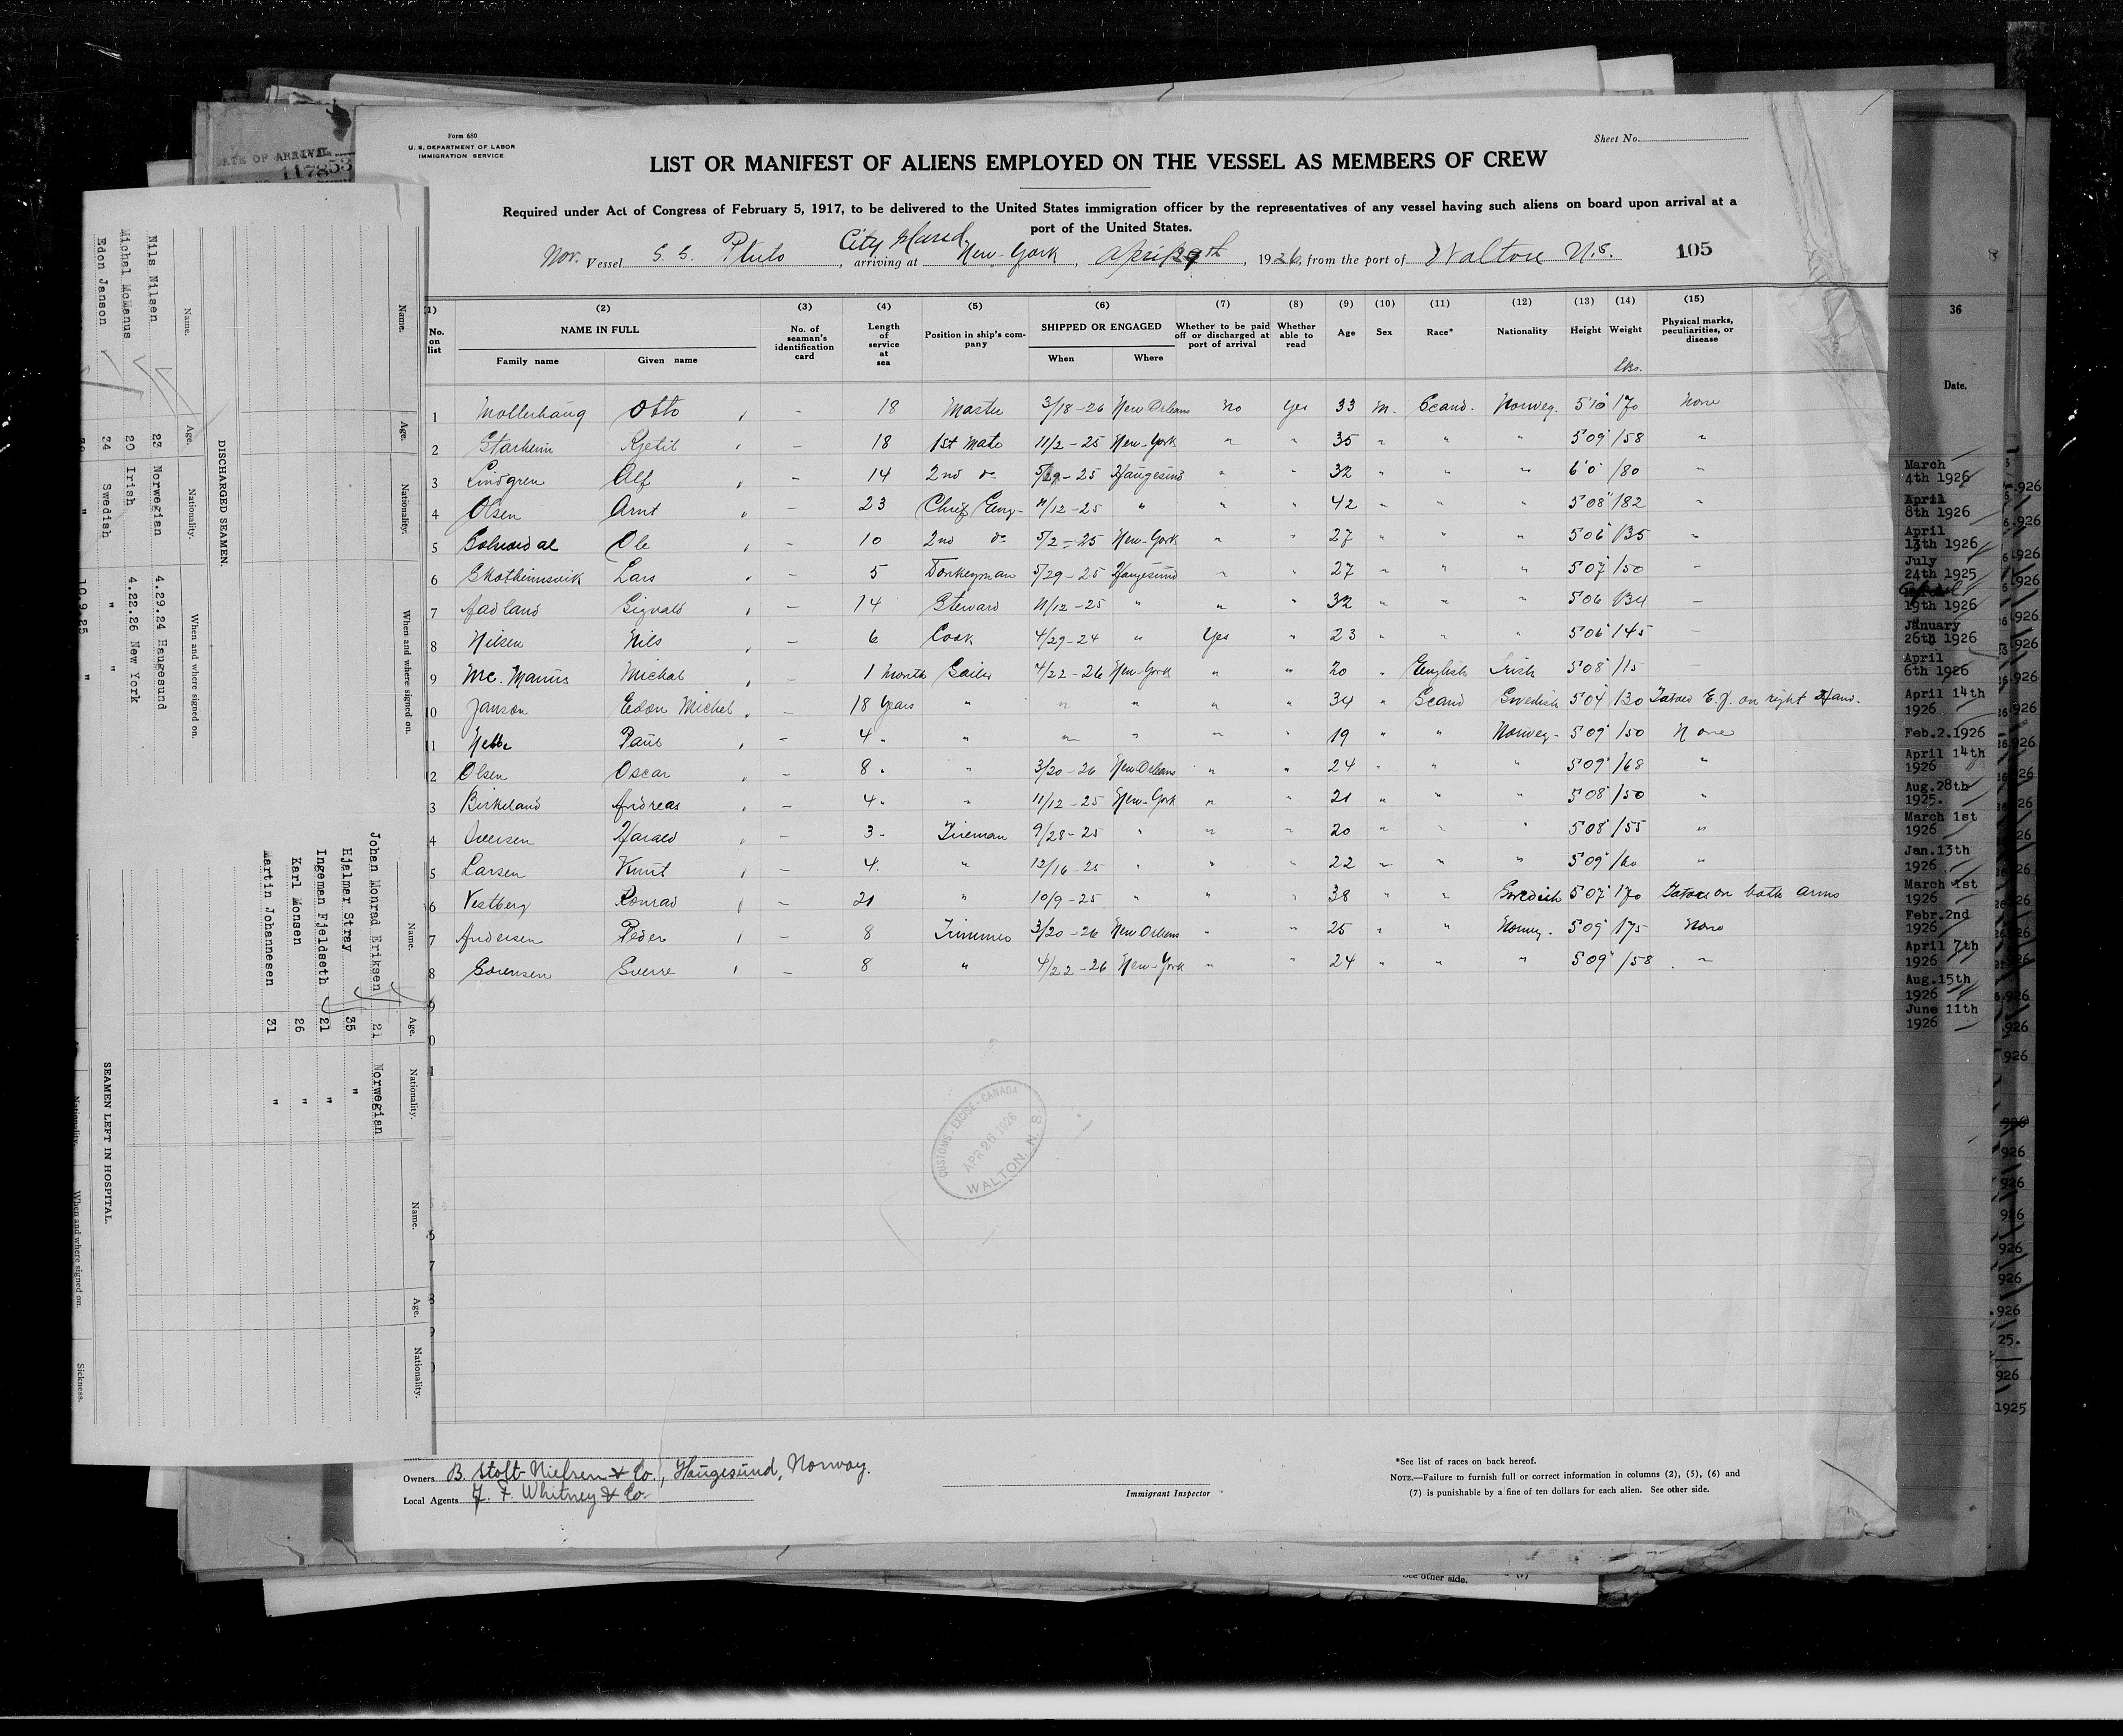 Form 680
U. S. DEPARTMENT OF LABOR
IMMIGRATION SERVICE
Sheet No.
LIST OR MANIFEST OF ALIENS EMPLOYED ON THE VESSEL AS MEMBERS OF CREW
Required under Act of Congress of February 5, 1917, to be delivered to the United States immigration officer by the representatives of any vessel having such aliens on board upon arrival at a
port of the United States.
City Island
Nor. Vessel S. S. Pluto, arriving at New-York, April 29th, 1926, from the port of Walton N.S. 105
(1) (2) (3) (4) (5) (6) (7) (8) (9) (10) (11) (12) (13) (14) (15)
No. on list NAME IN FULL No. of seaman's identification card Length of service at sea Position in ship's company SHIPPED OR ENGAGED Whether to be paid off or discharged at port of arrival Whether able to read Age Sex Race* Nationality Height Weight Physical marks, peculiarities, or disease
Family name Given name When Where Lbs.
1 Otto - 18 Master 3/18-26 New Orleans No Yes 33 M. Scand. Norweg. 5'10 170 None
2 Starheim Kjetil - 18 1st Mate 11/2-25 New-York " " 35 " " " 5'09 158 "
3 Lindgren Alf - 14 2nd do 5/29-25 Haugesund " " 32 " " " 6'0 180 "
4 Olsen Arnt - 23 Chief Eng- 11/12-25 " " " 42 " " " 5'08 182 "
5 Ole - 10 2nd do 5/2-25 New-York " " 27 " " " 5'06 135 "
6 Skotheimsvik Lars - 5 Donkeyman 5/29-25 Haugesund " " 27 " " " 5'07 150 -
7 Aadland Sigvald - 14 Steward 11/12-25 " " " 32 " " " 5'06 134 -
8 Nilsen Nils - 6 Cook 4/29-24 " Yes " 23 " " " 5'06 145 -
9 Mc. Manus Michal - 1 Month Sailor 4/22-26 New-York " " 20 " English Irish 5'08 115 -
10 Janson Edon Michel - 18 Years " " " " " 34 " Scand Swedish 5'04 130 Tatoed E.J. on right Hand.
11 Paul - 4 " " " " " " 19 " " Norweg- 5'09 150 None
2 Olsen Oscar - 8 " " 3/20-26 New Orleans " " 24 " " " 5'09 168 "
3 Birkeland Andreas - 4 " " 11/12-25 New-York " " 21 " " " 5'08 150 "
4 Iversen Harald - 3 - Fireman 9/28-25 " " " 20 " " " 5'08 155 "
5 Larsen Knut - 4 " 12/16-25 " " " 22 " " " 5'09 160 "
6 Vestberg Konrad - 21 " 10/9-25 " " " 38 " " Swedish 5'07 170 Tatoed on both arms
7 Andersen Peder - 8 Trimmer 3/20-26 New Orleans " " 25 " " Norweg. 5'09 175 None
8 Sorensen Sverre - 8 " 4/22-26 New-York " " 24 " " " 5'09 158 "
CUSTOMS-EXCISE-CANADA
APR 26 1926
WALTON, N. S
Owners B. Stolt-Nielsen & Co., Haugesund, Norway.
Local Agents F. Whitney & Co.
Immigrant Inspector
*See list of races on back hereof.
NOTE.—Failure to furnish full or correct information in columns (2), (5), (6) and
(7) is punishable by a fine of ten dollars for each alien. See other side.
See other side.
DATE OF ARRIVAL
117853
DISCHARGED SEAMEN.
Name. Age. Nationality. When and where signed on.
Nils Nilsen 23 Norwegian 4.29.24 Haugesund
Michal McManus 20 Irish 4.22.26 New York
Edon Janson 34 Swedish " "
10.9.25 "
Name. Age. Nationality. When and where signed on.
Name. Age. Nationality.
Johan Monrad Eriksen 21 Norwegian
Hjelmar Stray 35 "
Ingeman Fjeldseth 21 "
Karl Monsen 26 "
Martin Johannesen 31 "
Name. Age. Nationality.
SEAMEN LEFT IN HOSPITAL.
Nationality. When and where signed on. Sickness.
36
Date.
March
4th 1926
April
8th 1926
April
13th 1926
July
24th 1925
19th 1926
January
26th 1926
April
6th 1926
April 14th
1926
Feb.2.1926
April 14th
1926
Aug.28th
1925.
March 1st
1926
Jan.13th
1926
March 1st
1926
Febr.2nd
1926
April 7th
1926
Aug.15th
1926
June 11th
1926
1925